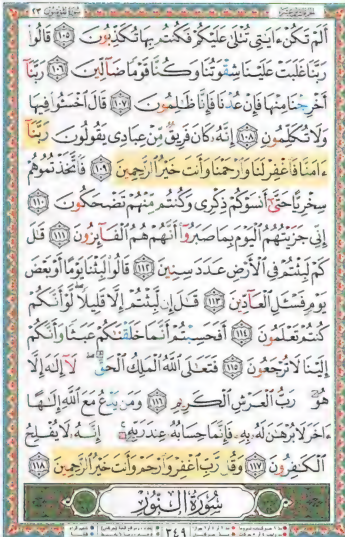 أَلَمْ تَكُنْ ءَايَٰتِى تُتْلَىٰ عَلَيْكُمْ فَكُنتُم بِهَا تُكَذِّبُونَ ١٠٥ قَالُوا۟
رَبَّنَا غَلَبَتْ عَلَيْنَا شِقْوَتُنَا وَكُنَّا قَوْمًا ضَآلِّينَ ١٠٦ رَبَّنَآ
أَخْرِجْنَا مِنْهَا فَإِنْ عُدْنَا فَإِنَّا ظَٰلِمُونَ ١٠٧ قَالَ ٱخْسَـُٔوا۟ فِيهَا
وَلَا تُكَلِّمُونِ ١٠٨ إِنَّهُۥ كَانَ فَرِيقٌ مِّنْ عِبَادِى يَقُولُونَ رَبَّنَآ
ءَامَنَّا فَٱغْفِرْ لَنَا وَٱرْحَمْنَا وَأَنتَ خَيْرُ ٱلرَّٰحِمِينَ ١٠٩ فَٱتَّخَذْتُمُوهُمْ
سِخْرِيًّا حَتَّىٰٓ أَنسَوْكُمْ ذِكْرِى وَكُنتُم مِّنْهُمْ تَضْحَكُونَ ١١٠
إِنِّى جَزَيْتُهُمُ ٱلْيَوْمَ بِمَا صَبَرُوٓا۟ أَنَّهُمْ هُمُ ٱلْفَآئِزُونَ ١١١ قَٰلَ
كَمْ لَبِثْتُمْ فِى ٱلْأَرْضِ عَدَدَ سِنِينَ ١١٢ قَالُوا۟ لَبِثْنَا يَوْمًا أَوْ بَعْضَ
يَوْمٍ فَسْـَٔلِ ٱلْعَآدِّينَ ١١٣ قَٰلَ إِن لَّبِثْتُمْ إِلَّا قَلِيلًا لَّوْ أَنَّكُمْ
كُنتُمْ تَعْلَمُونَ ١١٤ أَفَحَسِبْتُمْ أَنَّمَا خَلَقْنَٰكُمْ عَبَثًا وَأَنَّكُمْ
إِلَيْنَا لَا تُرْجَعُونَ ١١٥ فَتَعَٰلَى ٱللَّهُ ٱلْمَلِكُ ٱلْحَقُّ لَآ إِلَٰهَ إِلَّا
هُوَ رَبُّ ٱلْعَرْشِ ٱلْكَرِيمِ ١١٦ وَمَن يَدْعُ مَعَ ٱللَّهِ إِلَٰهًا
ءَاخَرَ لَا بُرْهَٰنَ لَهُۥ بِهِۦ فَإِنَّمَا حِسَابُهُۥ عِندَ رَبِّهِۦٓ إِنَّهُۥ لَا يُفْلِحُ
ٱلْكَٰفِرُونَ ١١٧ وَقُل رَّبِّ ٱغْفِرْ وَٱرْحَمْ وَأَنتَ خَيْرُ ٱلرَّٰحِمِينَ ١١٨
سُورَةُ ٱلنُّورِ
٣٤٩